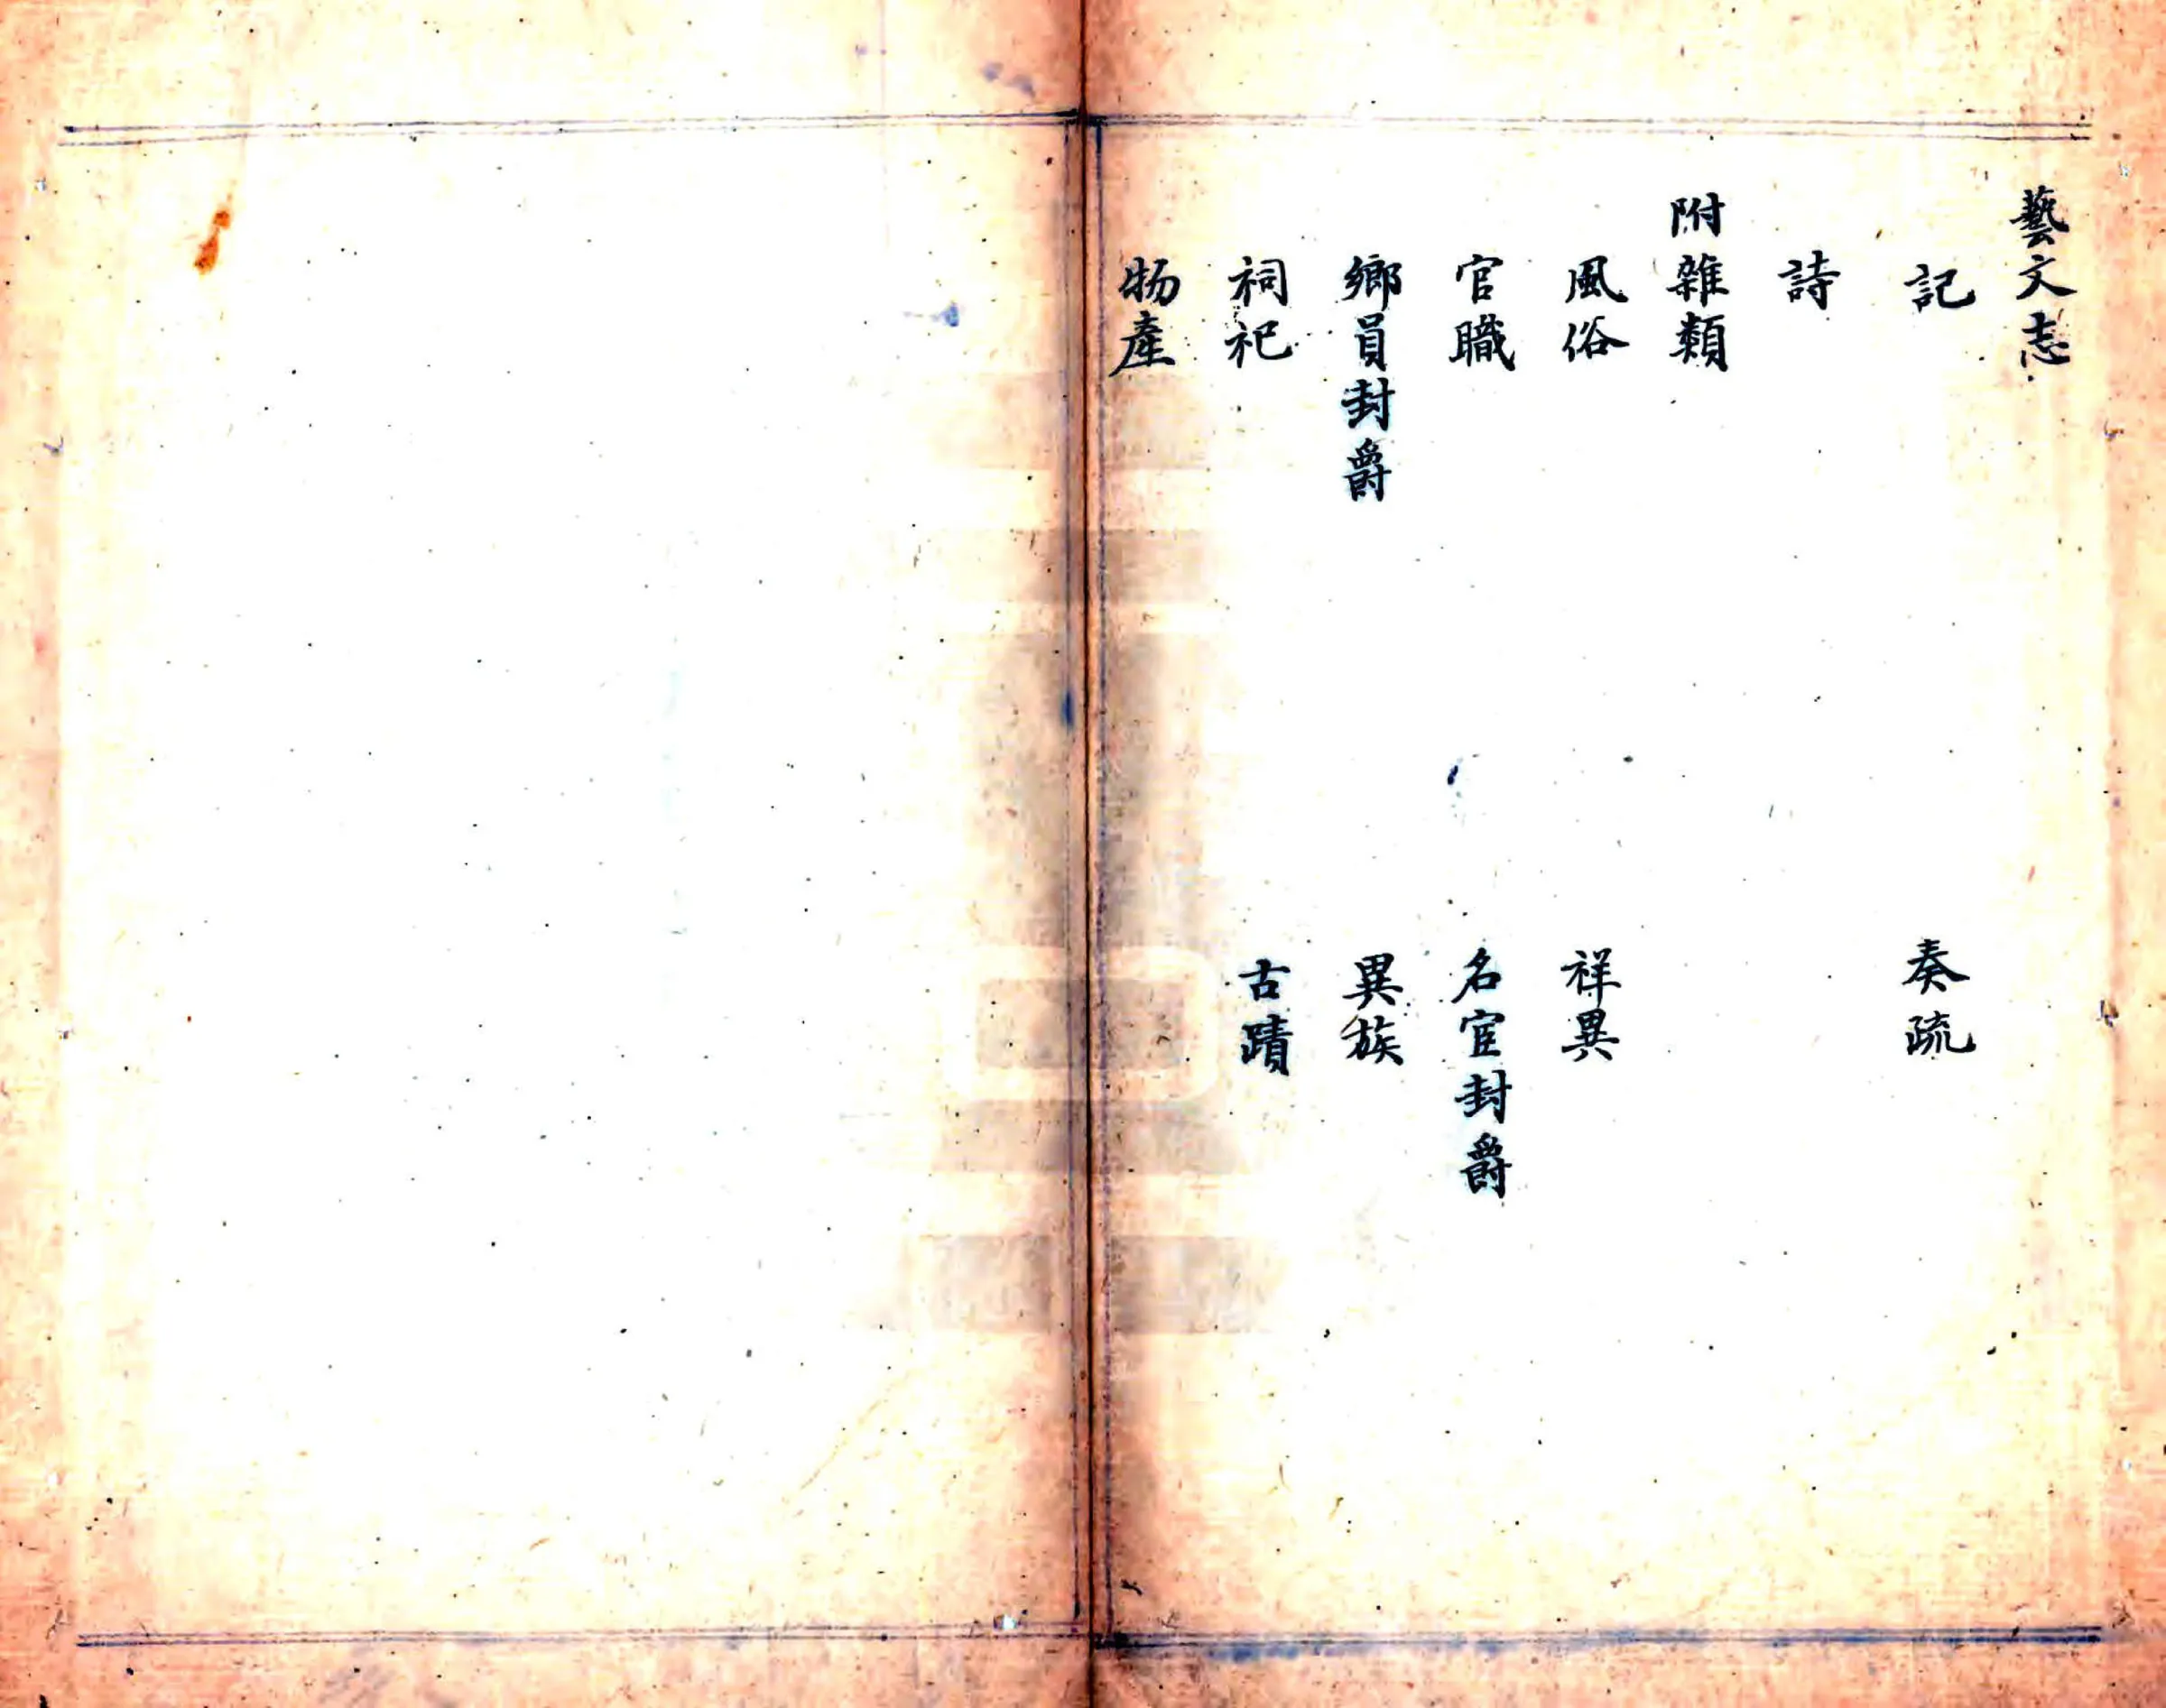 藝文志
記　奏疏
詩
附雜類
風俗　祥異
官職　名宦封爵
鄉員封爵　異族
祠祀　古蹟
物產